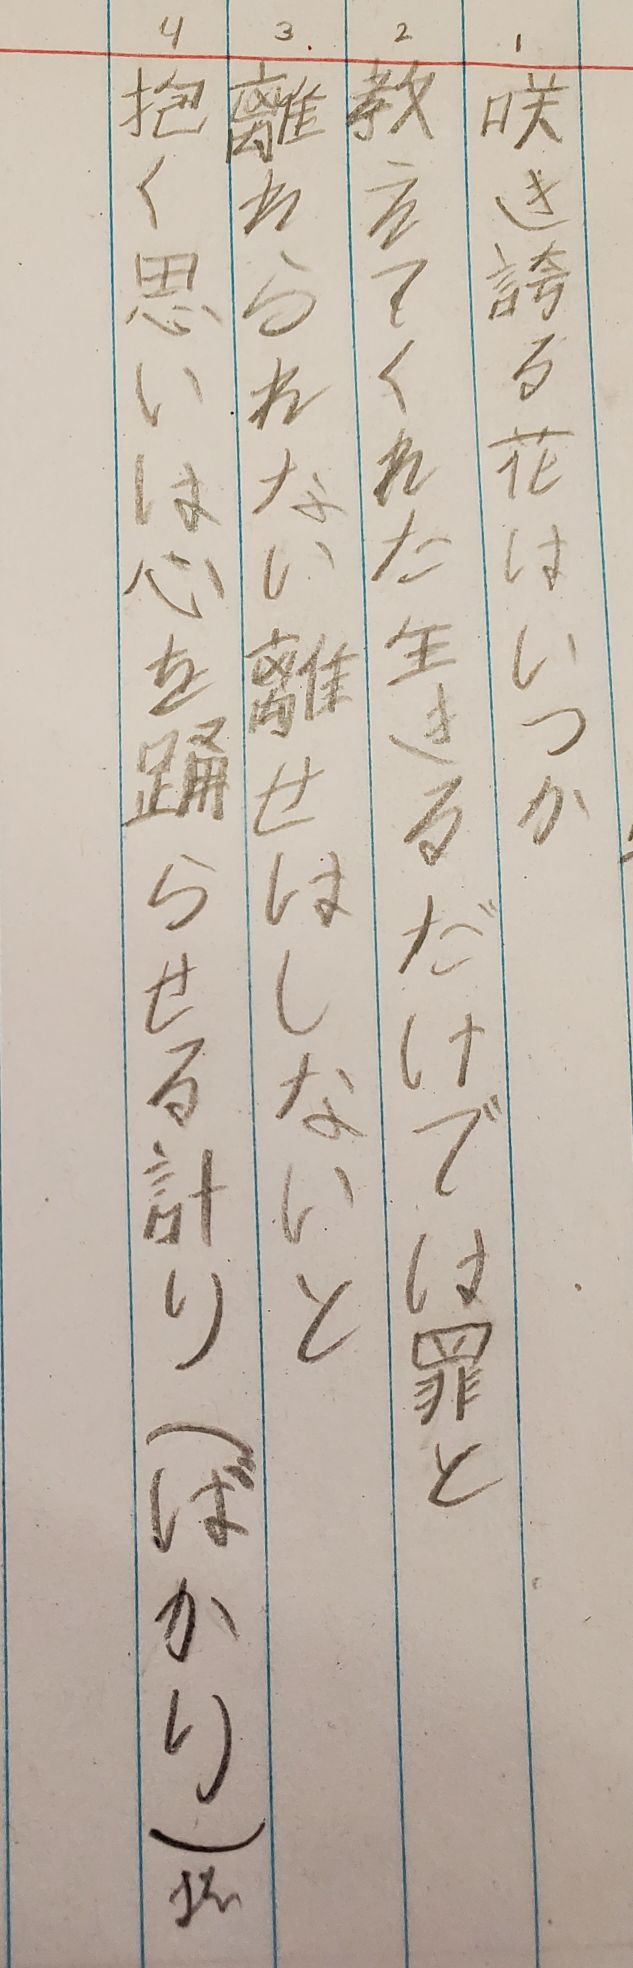 1 咲き誇る花はいつか
2 教えてくれた生きるだけでは罪と
3 離れられない離せはしないと
4 抱く思いは心を踊らせる計り(ばかり)